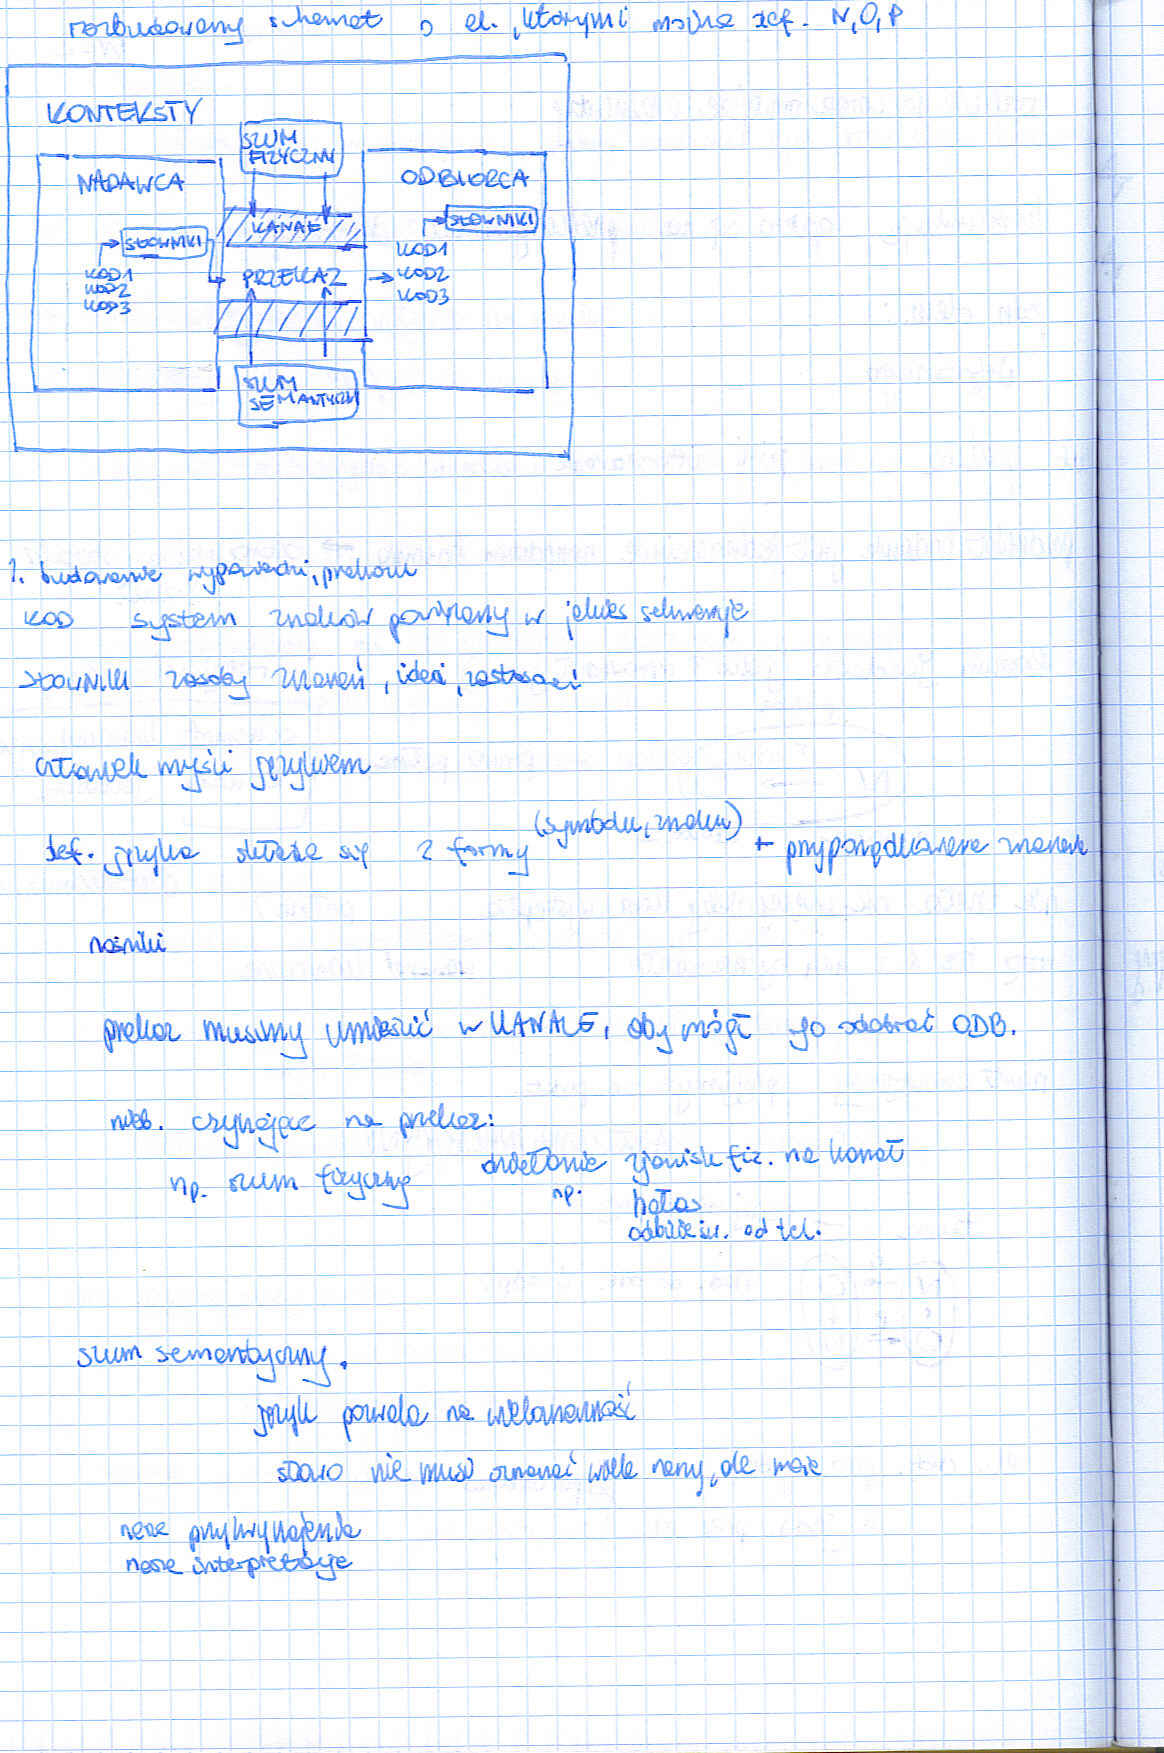 rozbudowany schemat o el., którymi można def. N, O, P
KONTEKSTY
SZUM
FIZYCZNY
NADAWCA
ODBIORCA
KANAŁ
SŁOWNIKI
SŁOWNIKI
KOD1
KOD2
KOD3
PRZEKAZ
KOD1
KOD2
KOD3
SZUM
SEMANTYCZN
1. budowanie wypowiedzi, przekazu
KOD system znaków powiązany w jakieś sekwencje
SŁOWNIK zasoby znaczeń, idei,
człowiek myśli językiem
def. języka składa się z formy (symbolu, znaku) + przyporządkowane znaczenie
nośniki
przekaz musimy umieścić w KANALE, aby mógł go odebrać ODB.
nieb. czyhające na przekaz:
np. szum fizyczny działanie zjawisk fiz. na kanał
np. hałas
odbicie św. od tel.
szum semantyczny.
język pozwala na wieloznaczność
słowo nie musi oznaczać wiele rzeczy, ale może
nasze przyzwyczajenia
nasze interpretacje